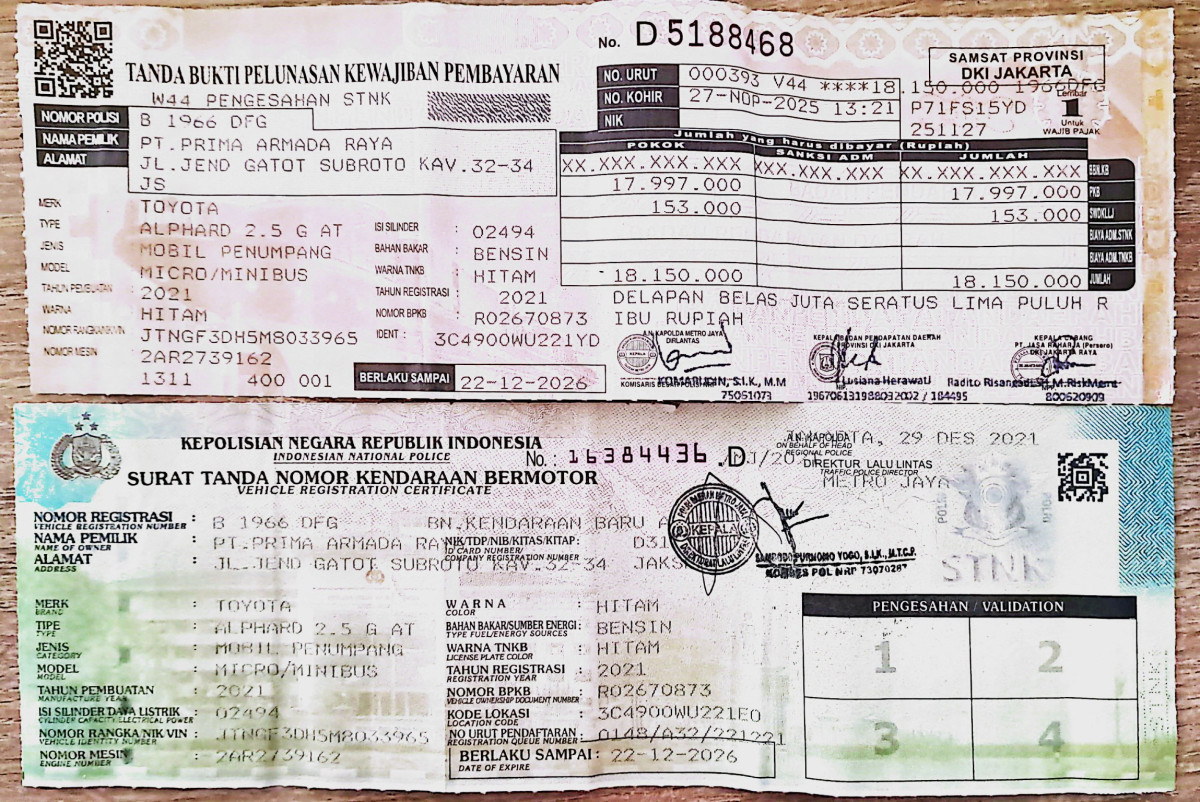 No. D 5188468
TANDA BUKTI PELUNASAN KEWAJIBAN PEMBAYARAN
W44 PENGESAHAN STNK
NO. URUT 000393 V44 ****18.150.000 1966DFG
NO. KOHIR 27-NOP-2025 13:21 P71FS15YD
NIK 251127
SAMSAT PROVINSI
DKI JAKARTA
Lembar
1
Untuk
WAJIB PAJAK
NOMOR POLISI B 1966 DFG
NAMA PEMILIK PT.PRIMA ARMADA RAYA
ALAMAT JL.JEND GATOT SUBROTO KAV.32-34
JS
Jumlah yang harus dibayar (Rupiah)
POKOK SANKSI ADM JUMLAH
XX.XXX.XXX.XXX XXX.XXX.XXX XX.XXX.XXX.XXX BBN.KB
17.997.000 17.997.000 PKB
153.000 153.000 SWDKLLJ
BIAYA ADM.STNK
BIAYA ADM.TNKB
18.150.000 18.150.000 JUMLAH
DELAPAN BELAS JUTA SERATUS LIMA PULUH R
IBU RUPIAH
MERK TOYOTA
TYPE ALPHARD 2.5 G AT ISI SILINDER : 02494
JENIS MOBIL PENUMPANG BAHAN BAKAR : BENSIN
MODEL MICRO/MINIBUS WARNA TNKB : HITAM
TAHUN PEMBUATAN : 2021 TAHUN REGISTRASI : 2021
WARNA HITAM NOMOR BPKB : R02670873
NOMOR RANGKA/NIK/VIN JTNGF3DH5M8033965 IDENT : 3C4900WU221YD
NOMOR MESIN 2AR2739162
1311 400 001 BERLAKU SAMPAI 22-12-2026
A.N KAPOLDA METRO JAYA
DIRLANTAS
KOMARUDIN, S.I.K., M.M
KOMISARIS BESAR POLISI
75051073
KEPALA BADAN PENDAPATAN DAERAH
PROVINSI DKI JAKARTA
Lusiana Herawati
196706131988032002 / 184495
KEPALA CABANG
PT. JASA RAHARJA (Persero)
DKI JAKARTA RAYA
800620909
KEPOLISIAN NEGARA REPUBLIK INDONESIA
INDONESIAN NATIONAL POLICE
No.: 16384436 .D
SURAT TANDA NOMOR KENDARAAN BERMOTOR
VEHICLE REGISTRATION CERTIFICATE
29 DES 2021
A.N. KAPOLDA
ON BEHALF OF HEAD
REGIONAL POLICE
DIREKTUR LALU LINTAS
TRAFFIC POLICE DIRECTOR
METRO JAYA
KEPALA
SAMBODO PURNOMO YOGO, S.I.K., M.T.C.P.
KOMBES POL NRP 73070287
STNK
NOMOR REGISTRASI : B 1966 DFG BN.KENDARAAN BARU
VEHICLE REGISTRATION NUMBER
NAMA PEMILIK : PT.PRIMA ARMADA RAYA NIK/TDP/NIB/KITAS/KITAP: D31
NAME OF OWNER ID CARD NUMBER/
COMPANY REGISTRATION NUMBER
ALAMAT : JL.JEND GATOT SUBROTO KAV.32-34 JAKS
ADDRESS
MERK : TOYOTA WARNA : HITAM
BRAND COLOR
TIPE : ALPHARD 2.5 G AT BAHAN BAKAR/SUMBER ENERGI : BENSIN
TYPE TYPE FUEL/ENERGY SOURCES
JENIS : MOBIL PENUMPANG WARNA TNKB : HITAM
CATEGORY LICENSE PLATE COLOR
MODEL : MICRO/MINIBUS TAHUN REGISTRASI : 2021
MODEL REGISTRATION YEAR
TAHUN PEMBUATAN : 2021 NOMOR BPKB : R02670873
MANUFACTURE YEAR VEHICLE OWNERSHIP DOCUMENT NUMBER
ISI SILINDER/DAYA LISTRIK : 02494 KODE LOKASI : 3C4900WU221E0
CYLINDER CAPACITY/ELECTRICAL POWER LOCATION CODE
NOMOR RANGKA/NIK/VIN : JTNGF3DH5M8033965 NO URUT PENDAFTARAN : 0148/A32/221221
VEHICLE IDENTITY NUMBER REGISTRATION QUEUE NUMBER
NOMOR MESIN : 2AR2739162 BERLAKU SAMPAI : 22-12-2026
ENGINE NUMBER DATE OF EXPIRE
PENGESAHAN / VALIDATION
1 2
3 4